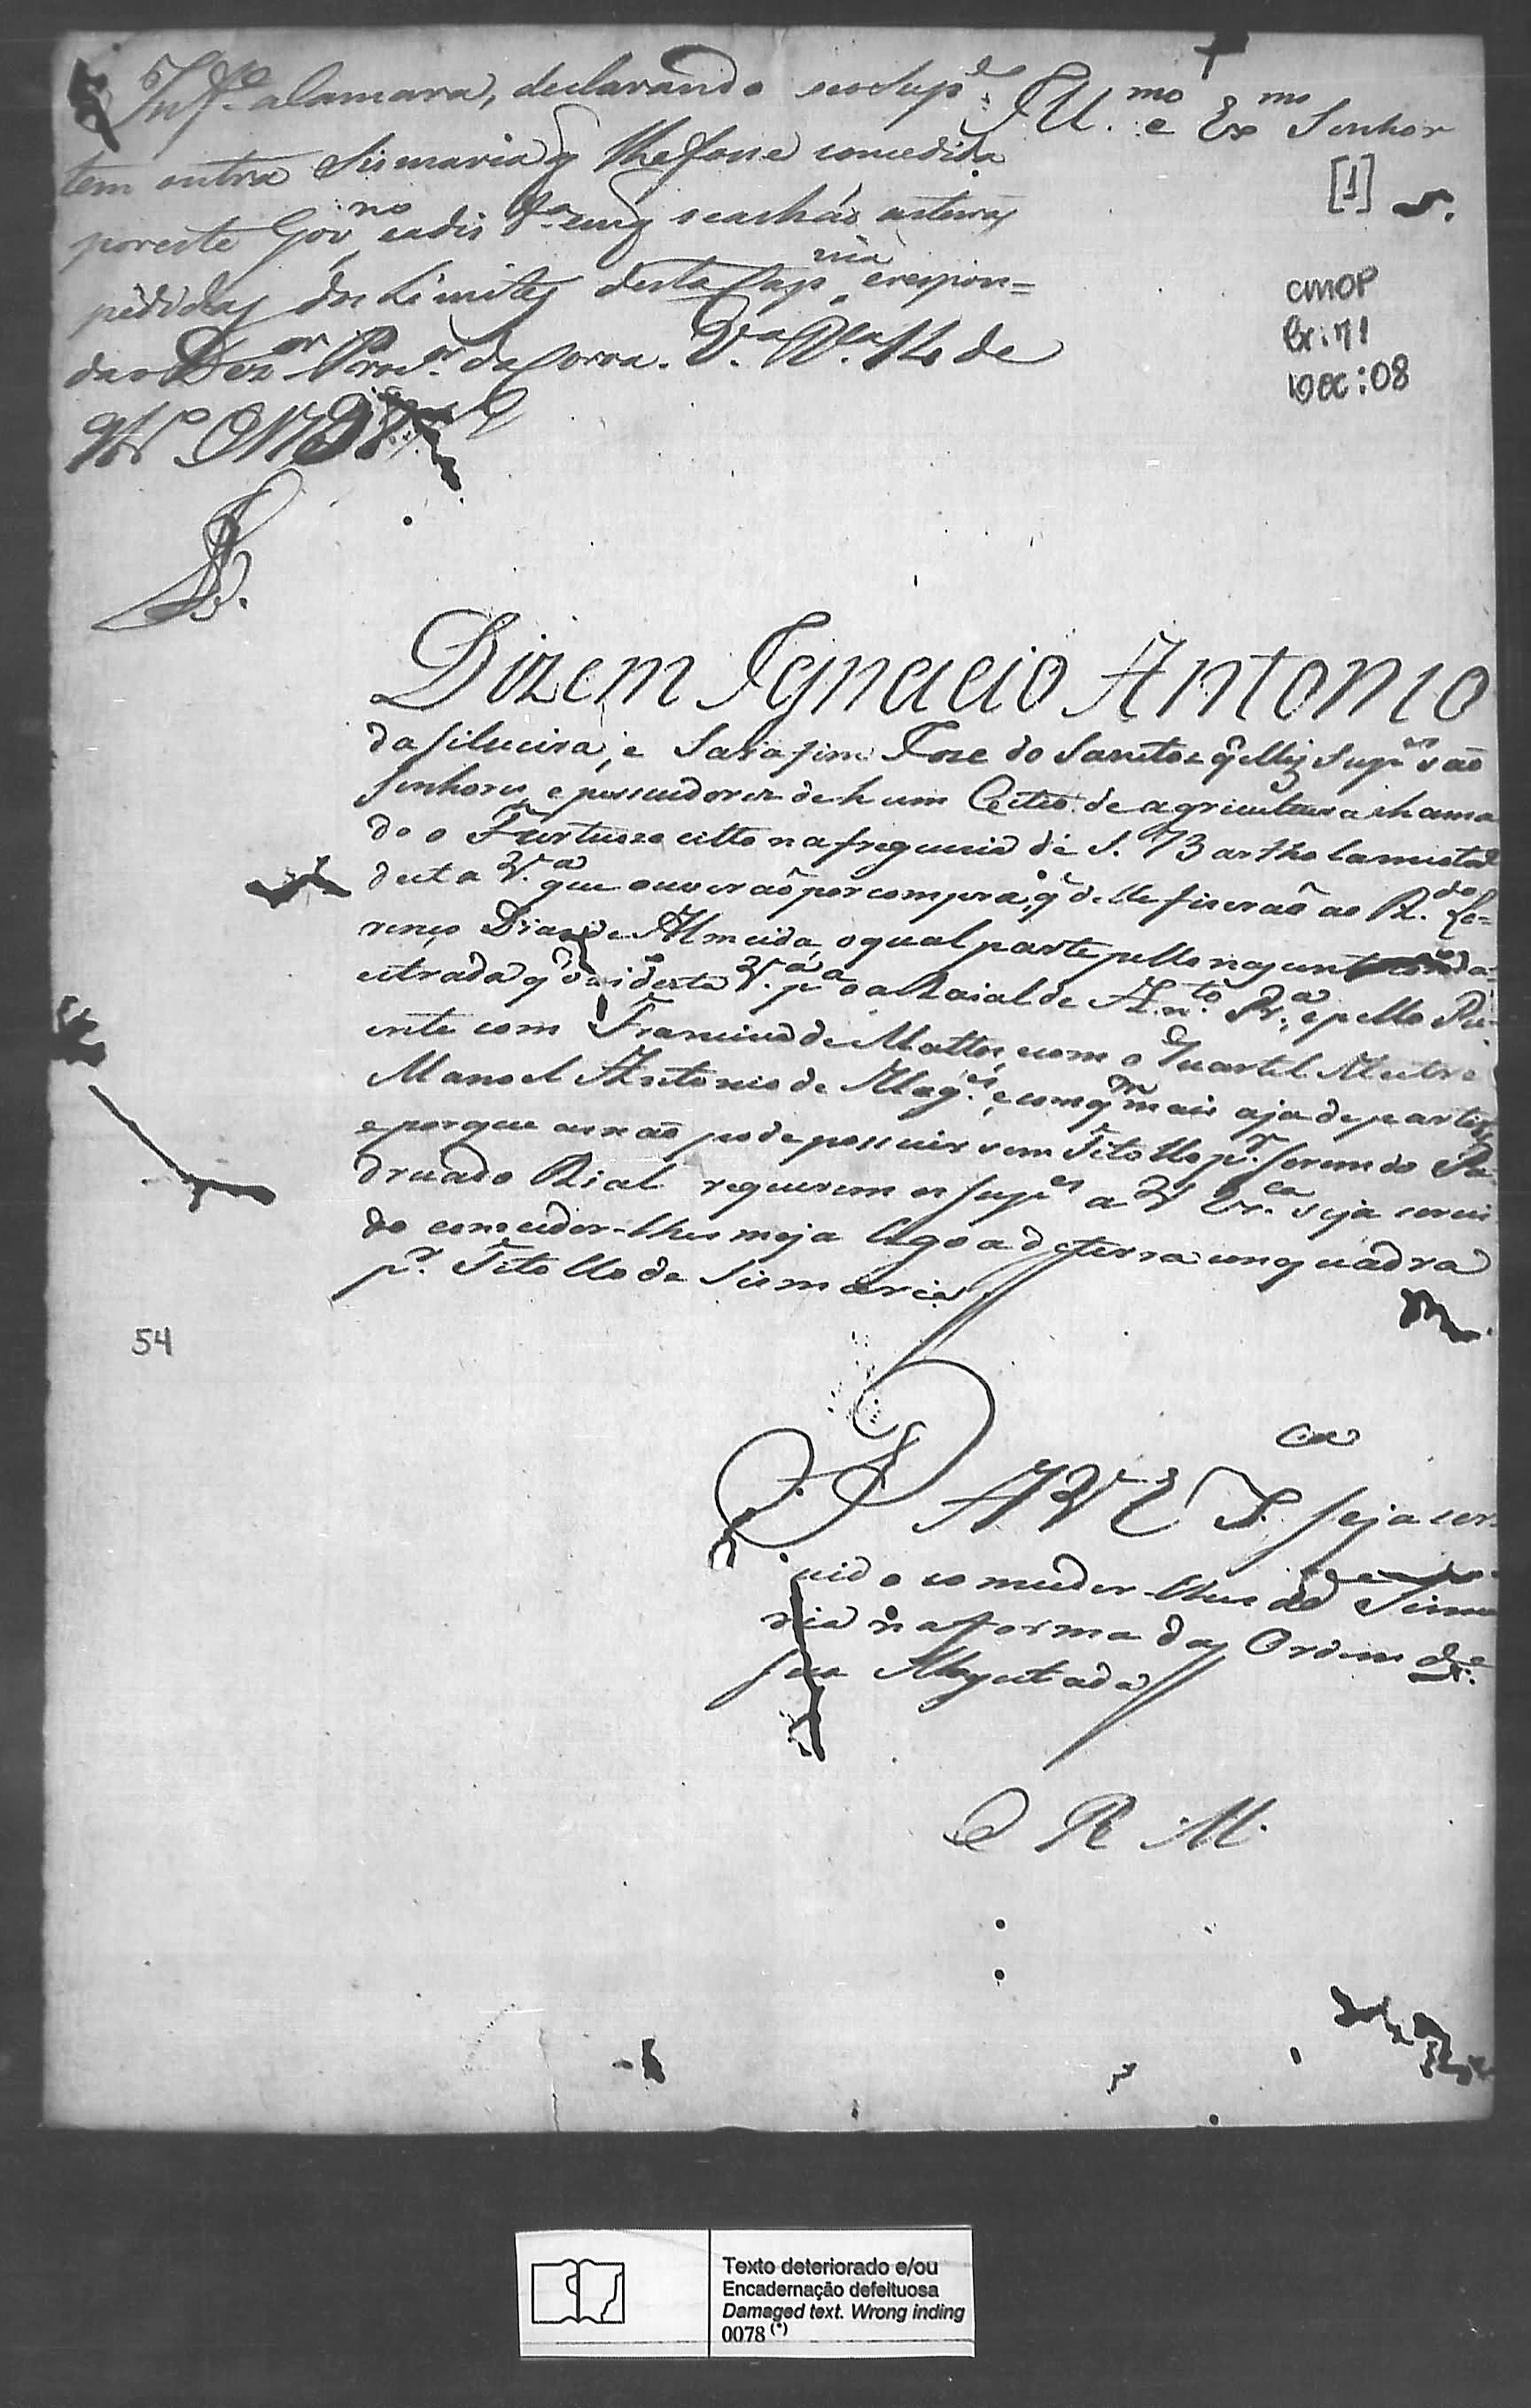 Inf.e a Camara, declarando se o Sup.e
tem outra Sismaria q̃ lhe fosse concedida
por este Gov.no e a dis.ª em q̃ se achaõ as terras
pedidas dos Limites desta Cap.nia e respon-
da o Dez.or Proc.or da Coroa. V.ª R.ª 14 de
Ill.mo e Ex.mo Senhor
[1]
CMOP
Cx: 71
Doc: 08
Dizem Ignacio Antonio
da Silueira, e Sarafim Joze do Santos q̃ elles Sup.es saõ
Senhores e possuidores de hum Citio de agricultura chama
do o Furtuozo citto na freguezia de S. Bartholameo
desta V.ª que ouveraõ por compra q̃ delle fiseraõ ao R.do Lo-
renço Dias de Almeida, o qual parte pello nacente
estrada q̃ vai desta V.ª p.ª o aRaial de An.to Pr.ª, e pello Pu-
ente com Francisco de Mattos, e com o Quartel Mestre
Manoel Antonio de Mag.es, e com q.m mais aja de partir
e porque as naõ pode possuir sem Titollo p.r serem do Pa
druado Rial requerem os Sup.es a V Ex.ca seja servi
do conceder-lhes meja legoa de terra em quadra
p.r Titollo de Sismaria
54
P. A V Ex.ca seja ser
uido conceder-lhes de Sisma
ria na forma das Ordens de
sua Magestade
E R M.
Texto deteriorado e/ou
Encadernação defeituosa
Damaged text. Wrong inding
0078 (*)